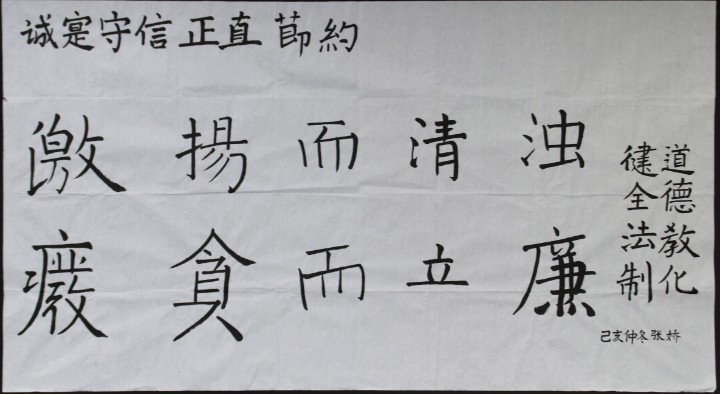 诚寔守信 正直 節約
激揚而清浊
癈貪而立廉
道德教化
徤全法制
己亥仲冬张娇